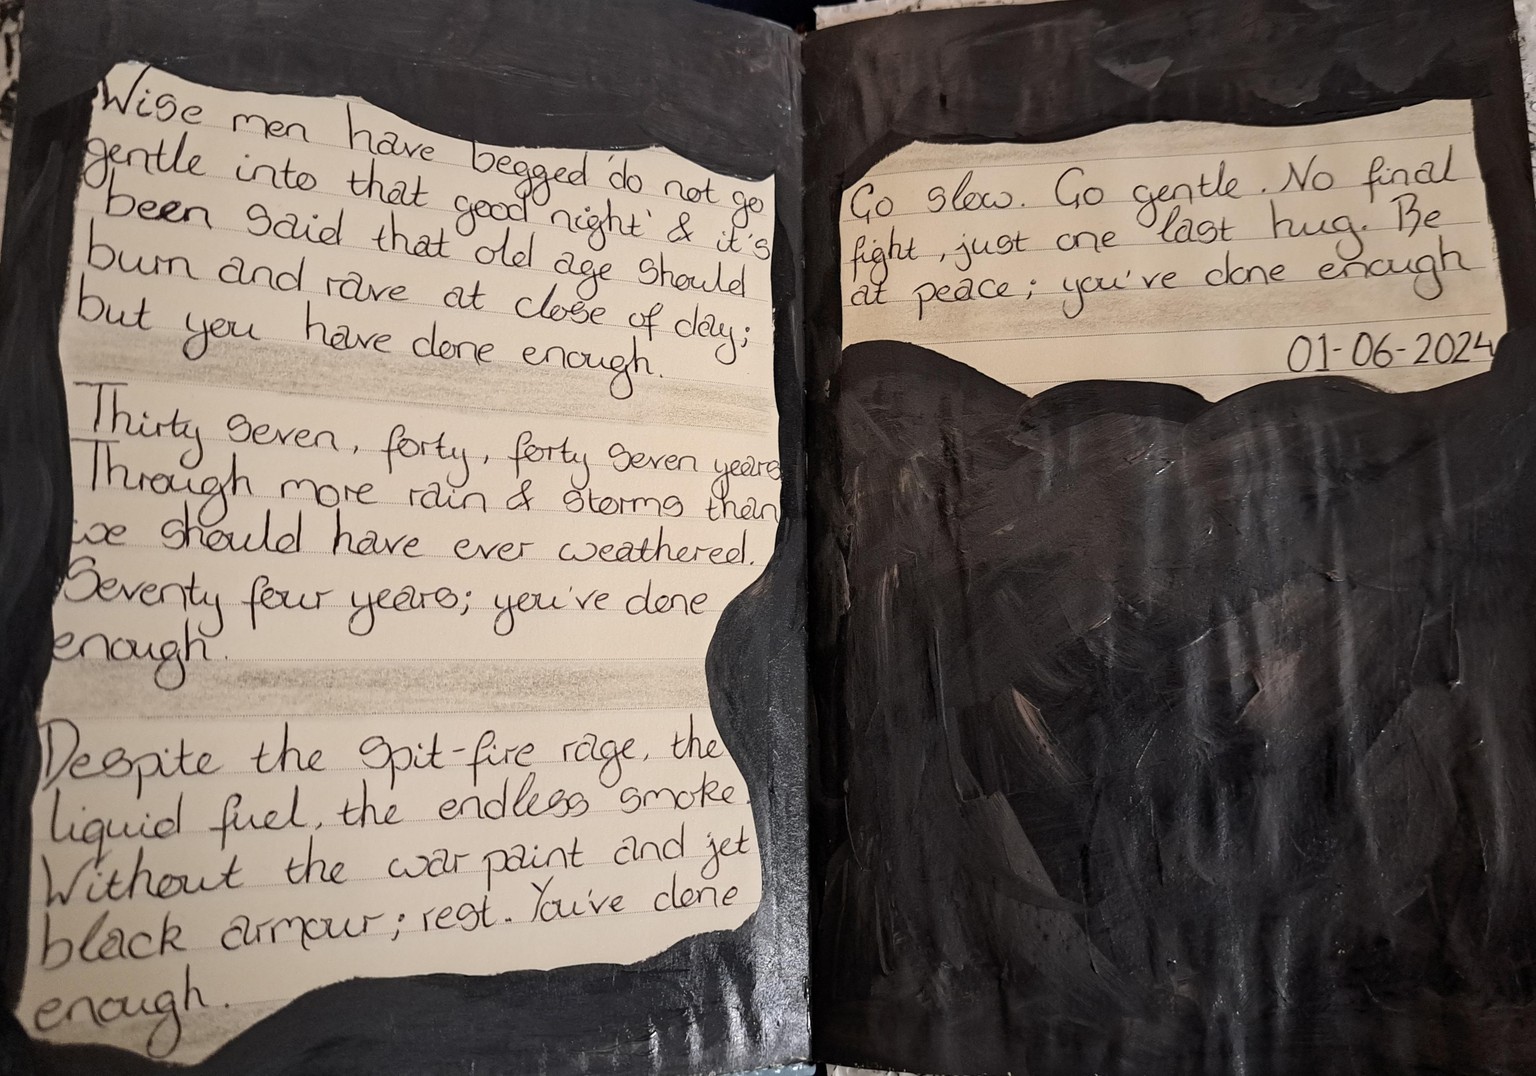 Wise men have begged 'do not go
gentle into that good night' & it's
been said that old age should
burn and rave at close of day;
but you have done enough.
Thirty seven, forty, forty seven years
Through more rain & storms than
we should have ever weathered.
Seventy four years; you've done
enough.
Despite the spit-fire rage, the
liquid fuel, the endless smoke.
Without the war paint and jet
black armour; rest. You've done
enough.
Go slow. Go gentle. No final
fight, just one last hug. Be
at peace; you've done enough
01-06-2024